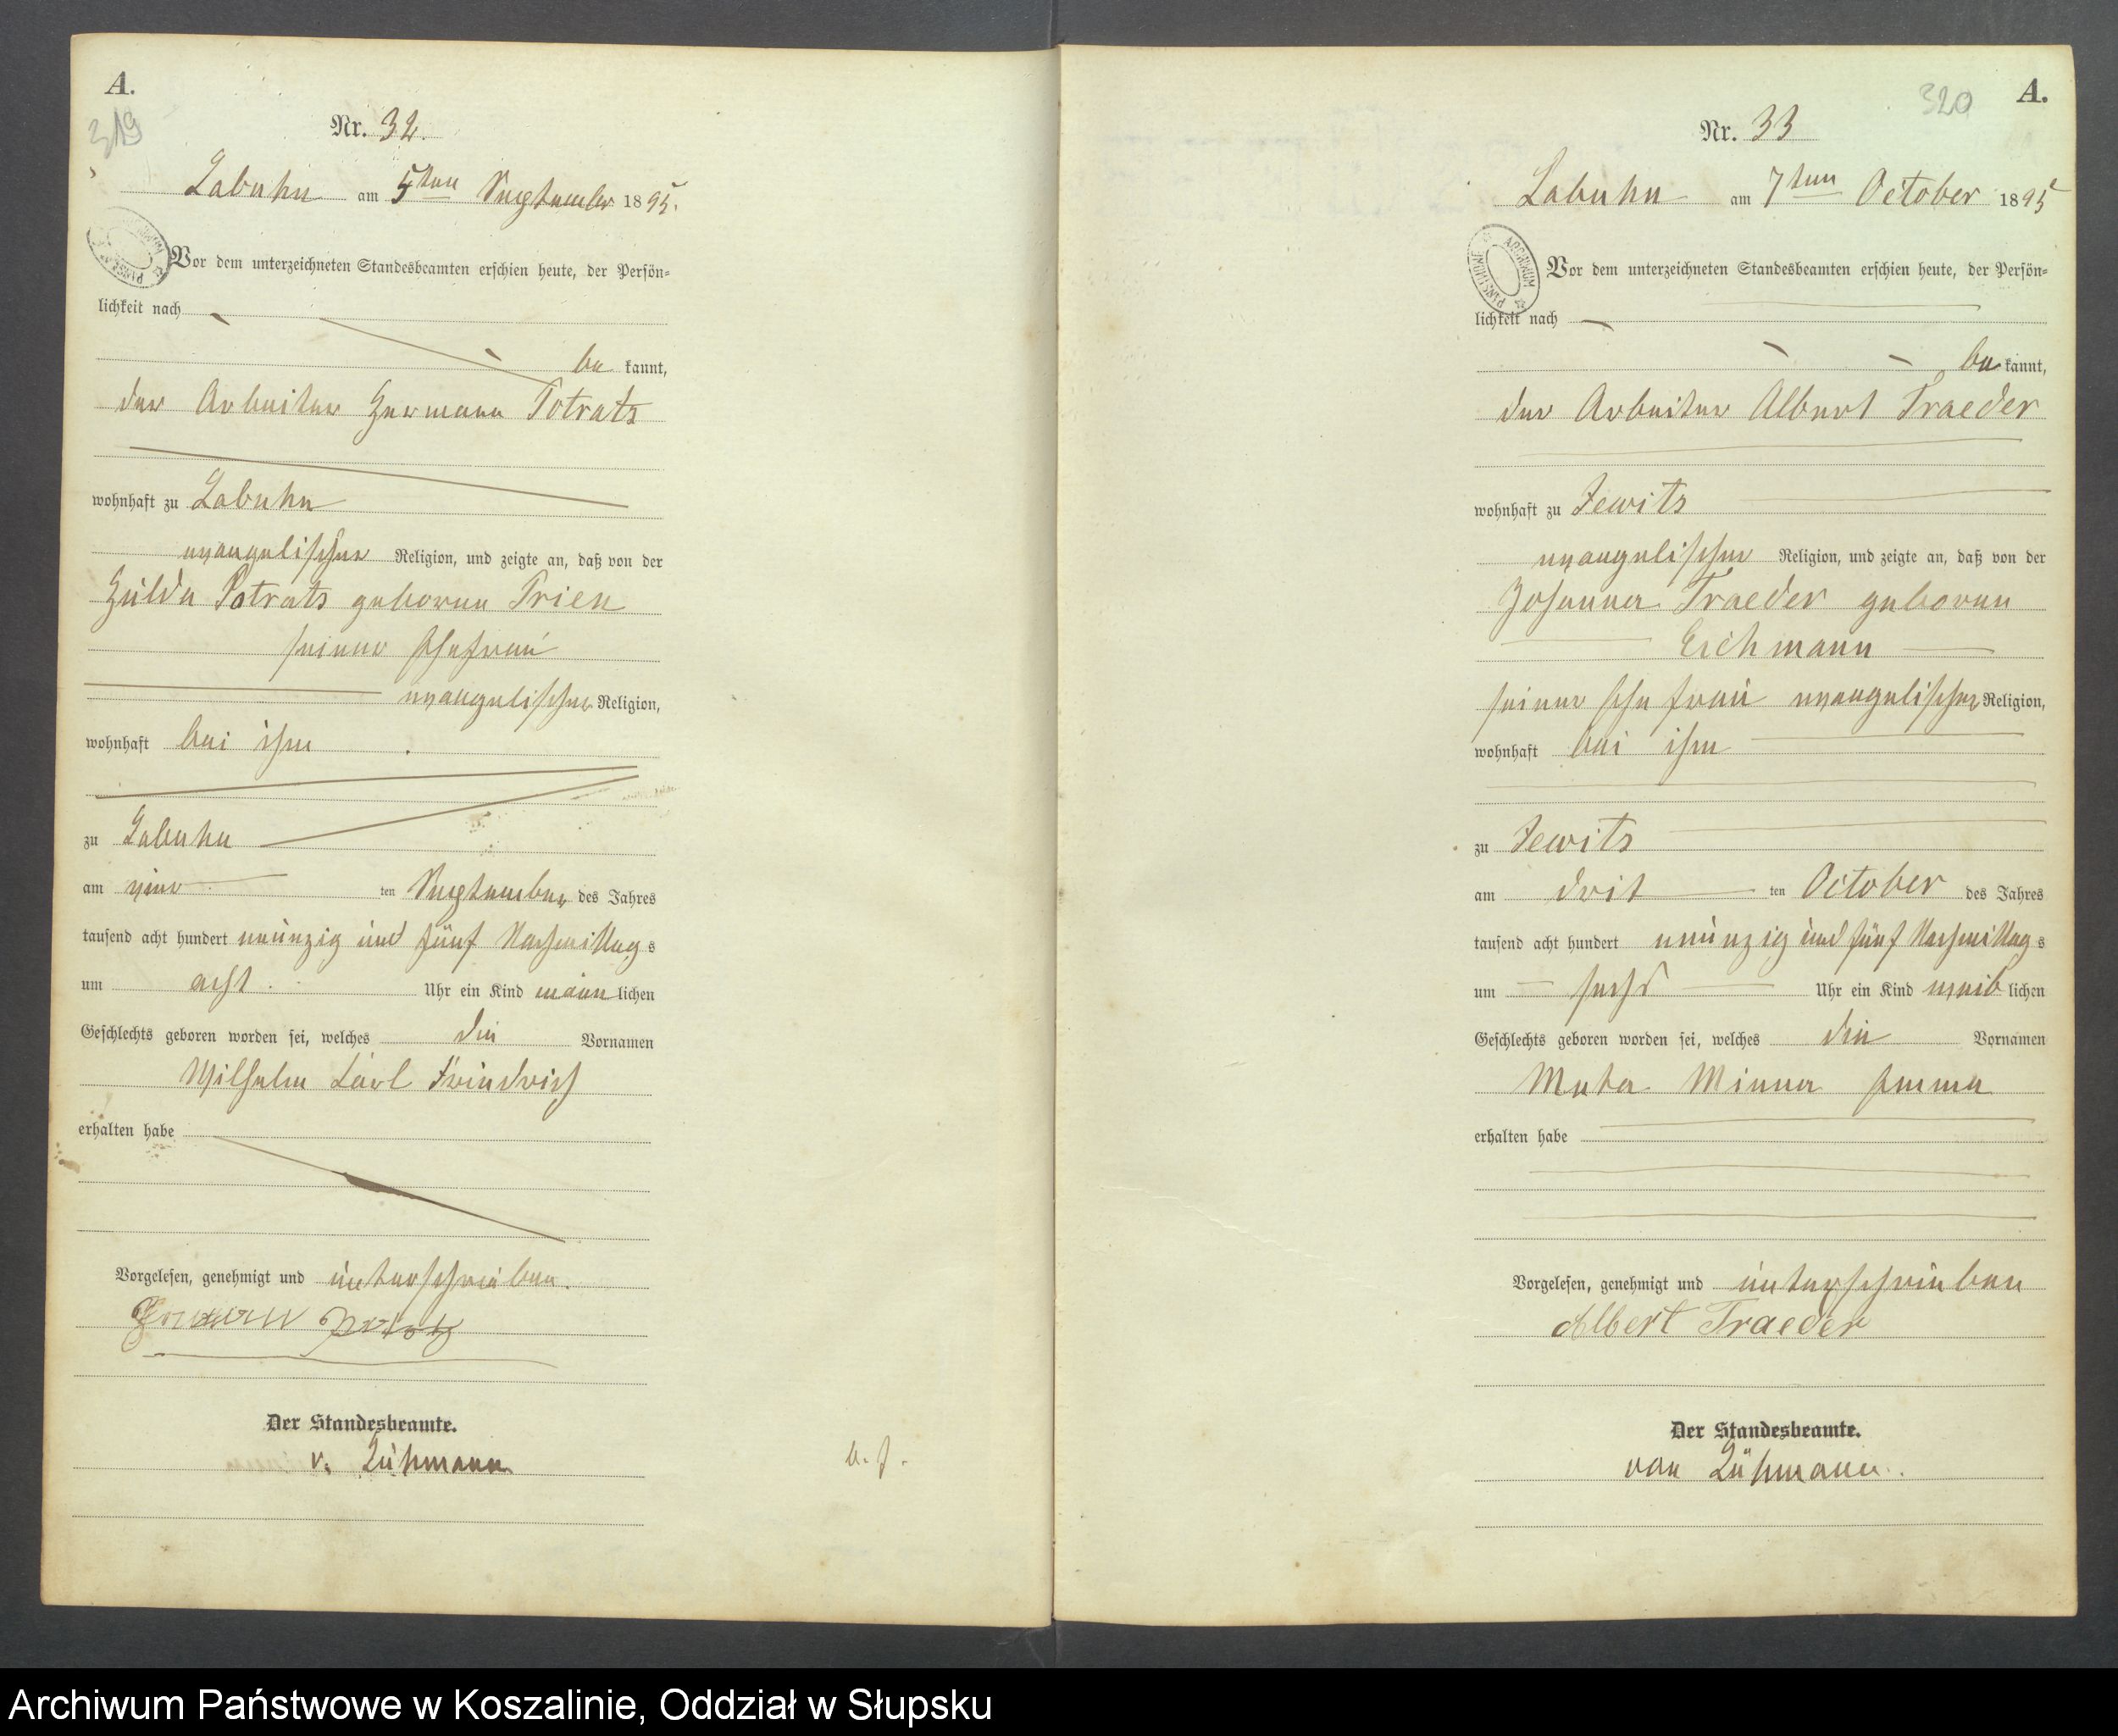 A.
319
Nr. 32.
Labuhn am 5ten September 1895.
Vor dem unterzeichneten Standesbeamten erschien heute, der Persön-
lichkeit nach
be kannt,
der Arbeiter Hermann Potratz
wohnhaft zu Labuhn
evangelischer Religion, und zeigte an, daß von der
Hulda Potrats geborene Prien
seiner Ehefrau
evangelischer Religion,
wohnhaft bei ihm
zu Labuhn
am vier ten September des Jahres
tausend acht hundert neunzig und fünf Nachmittag s
um acht Uhr ein Kind männ lichen
Geschlechts geboren worden sei, welches die Vornamen
Wilhelm Karl Friedrich
erhalten habe
Vorgelesen, genehmigt und unterschrieben.
Der Standesbeamte.
v. Lühmann
A.
320
Nr. 33
Labuhn am 7ten October 1895
ARCHIWUM PAŃSTWOWE
Vor dem unterzeichneten Standesbeamten erschien heute, der Persön-
lichkeit nach
be kannt,
der Arbeiter Albert Traeder
wohnhaft zu Zewitz
evangelischer Religion, und zeigte an, daß von der
Johanna Traeder geborene
Eichmann
seiner Ehefrau evangelischer Religion,
wohnhaft bei ihm
zu Zewitz
am drit ten October des Jahres
tausend acht hundert neunzig und fünf Nachmittag s
um sechs Uhr ein Kind weib lichen
Geschlechts geboren worden sei, welches die Vornamen
Meta Minna Emma
erhalten habe
Vorgelesen, genehmigt und unterschrieben
Albert Traeder
Der Standesbeamte.
von Lühmann.
Archiwum Państwowe w Koszalinie, Oddział w Słupsku